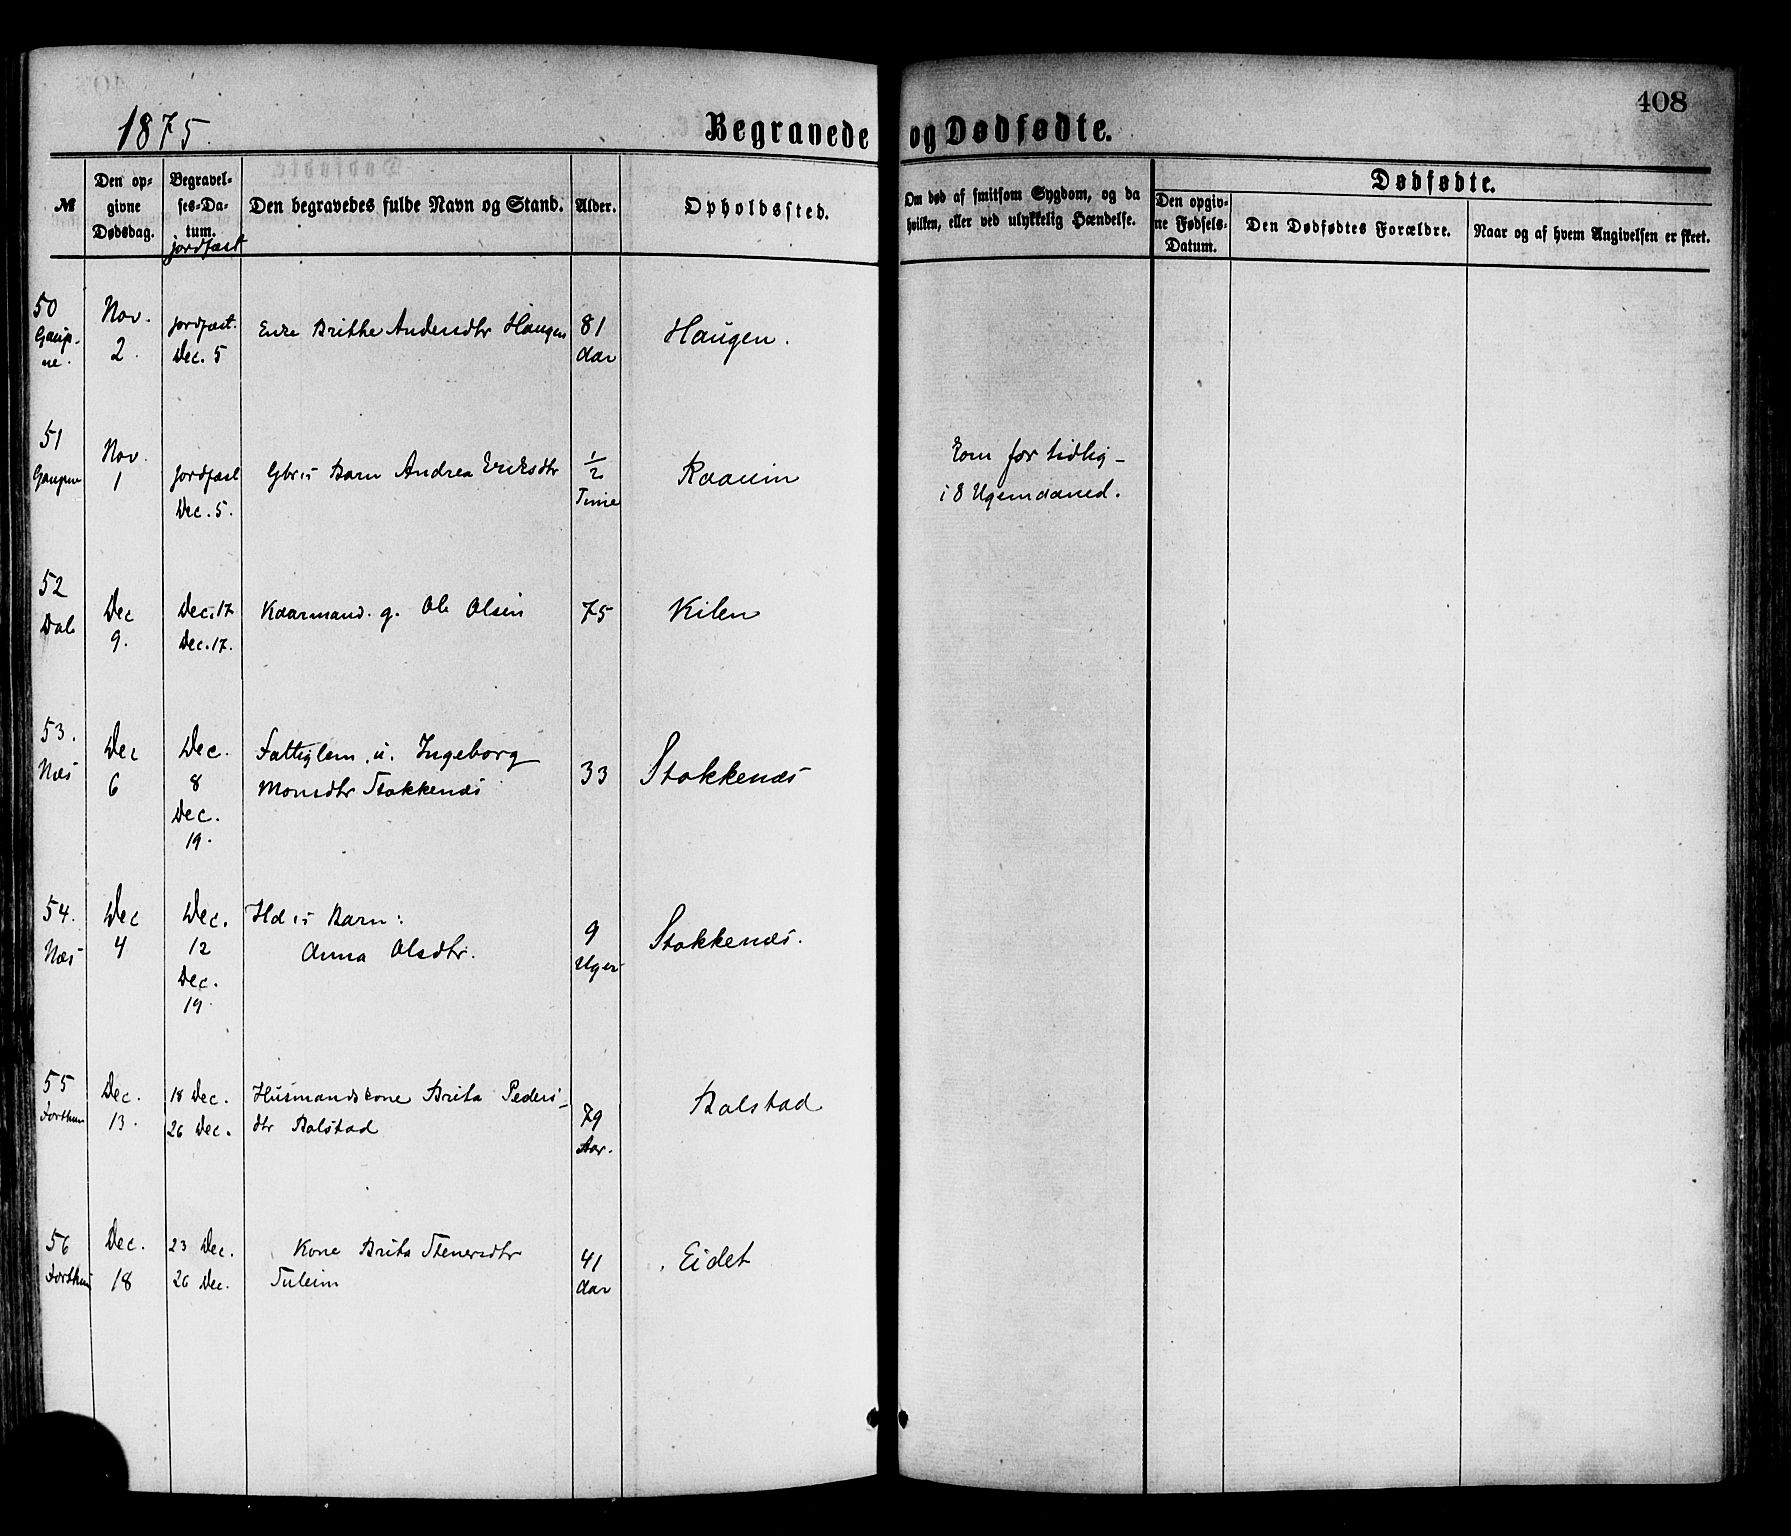 408
1875.
Begravede og Dødfødte.
№
Den op-
givne
Dødsdag.
Begravel-
ses-Da-
tum.
jordfæst
Den begravedes fulde Navn og Stand.
Alder.
Opholdssted.
Om død af smitsom Sygdom, og da
hvilken, eller ved ulykkelig Hændelse.
Dødfødte.
Den opgiv-
ne Fødsels-
Datum.
Den Dødfødtes Forældre.
Naar og af hvem Angivelsen er skeet.
50
Gaup-
ne.
Nov.
2.
jordfæst.
Dec. 5
Enke Brithe Andersdtr Haugen
81
Aar
Haugen.
51
Gaupne
Nov.
1
jordfæst
Dec. 5.
Gbr:s Barn Andrea Eriksdtr
1/2
Time
Raaum
Kom for tidlig –
i 8 Ugemaaned.
52
Dale
Dec
9.
Dec. 17
Dec. 17.
Kaarmand. g. Ole Olsen
75
Kilen
53.
Næs
Dec
6
Dec.
8
Dec.
19.
Fattiglem. u. Ingeborg
Monsdtr Stokkenæs
33
Stokkenæs
54.
Næs
Dec
4
Dec.
12
Dec.
19.
Hd:s Barn:
Anna Olsdtr.
9
Uger
Stokkenæs.
55
Forthun
Dec.
13.
18 Dec.
26 Dec.
Husmandskone Brita Peders-
dtr Bolstad
79
Aar.
Bolstad
56
Forthun
Dec.
18
23 Dec.
26 Dec.
Kone Brita Stenersdtr
Fuleim
41
Aar
Eidet